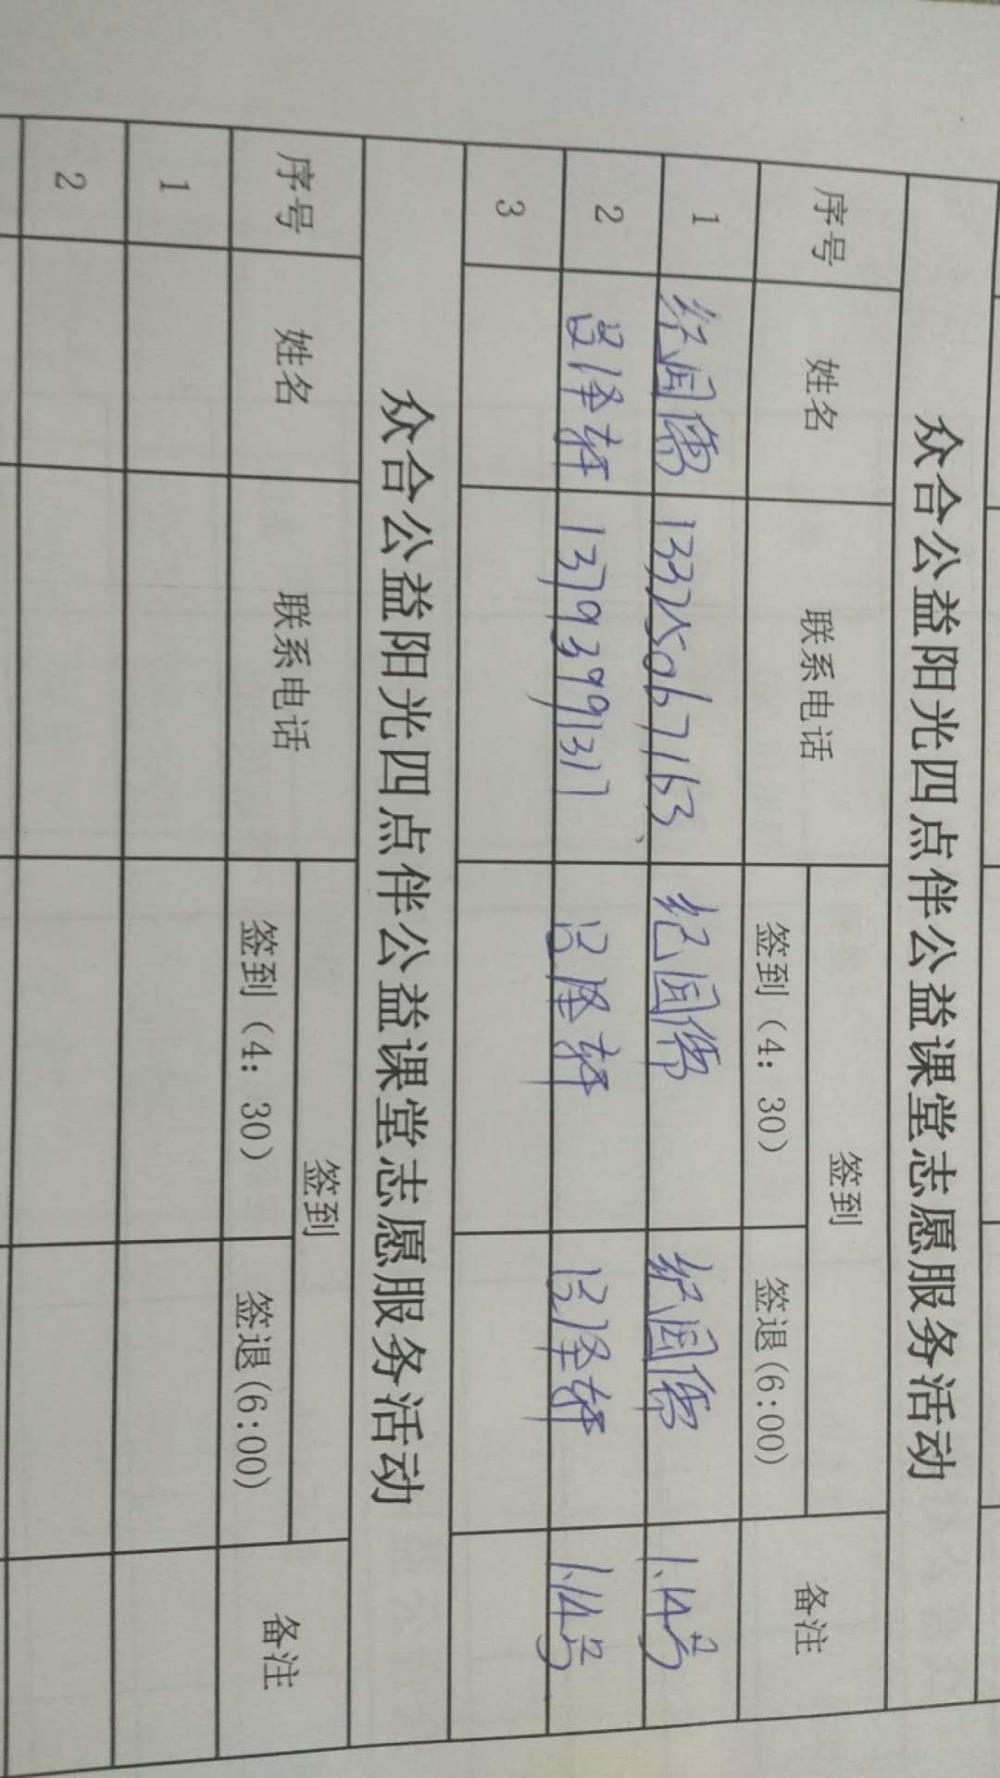 众合公益阳光四点伴公益课堂志愿服务活动
序号 姓名 联系电话 签到 备注
签到（4：30） 签退(6:00)
1 纪闰儒 13325067163 纪闰儒 纪闰儒 1.14号
2 吕泽轩 13793999131 吕泽轩 吕泽轩 1.14号
3
众合公益阳光四点伴公益课堂志愿服务活动
序号 姓名 联系电话 签到 备注
签到（4：30） 签退(6:00)
1
2